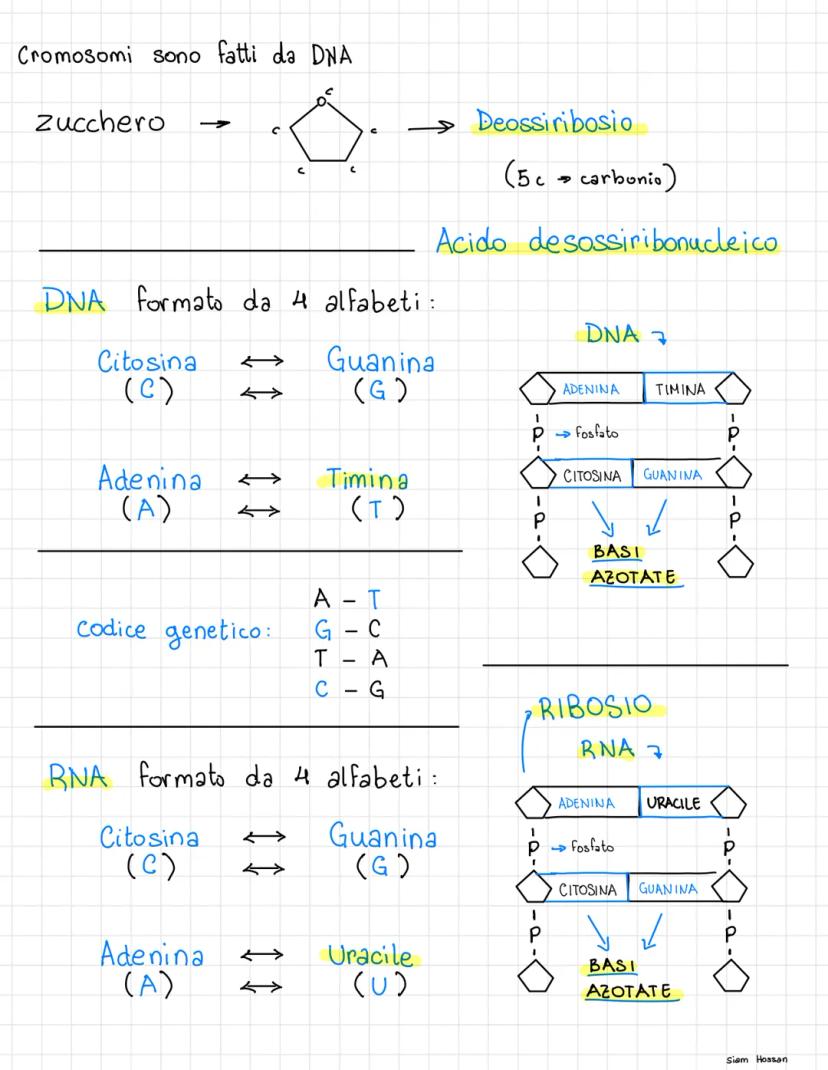 Cromosomi sono fatti da DNA
zucchero → C C C C C → Deossiribosio
(5c → carbonio)
Acido desossiribonucleico
DNA formato da 4 alfabeti:
Citosina ↔ Guanina
(C) ↔ (G)
Adenina ↔ Timina
(A) ↔ (T)
DNA
ADENINA TIMINA
P → Fosfato P
CITOSINA GUANINA
P P
BASI
AZOTATE
Codice genetico:
A - T
G - C
T - A
C - G
RIBOSIO
RNA
RNA formato da 4 alfabeti:
Citosina ↔ Guanina
(C) ↔ (G)
Adenina ↔ Uracile
(A) ↔ (U)
ADENINA URACILE
P → Fosfato P
CITOSINA GUANINA
P P
BASI
AZOTATE
Siam Hossan